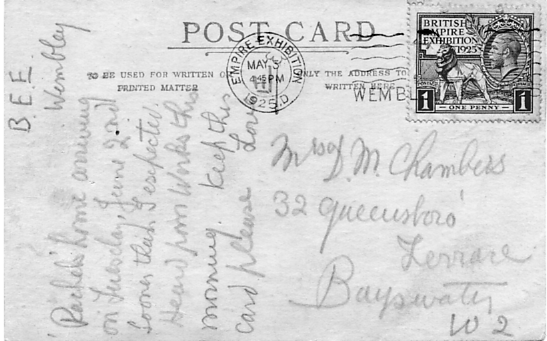 POST CARD
TO BE USED FOR WRITTEN OR
PRINTED MATTER
ONLY THE ADDRESS TO
WRITTEN HERE
EMPIRE EXHIBITION
MAY
45PM
1925.D
WEMB
BRITISH
EMPIRE
EXHIBITION
1925
1
ONE PENNY
1
B.E.E.
Wembley
Rachel's home arriving
on Tuesday, June 2nd
Sooner than I expected
Heard from Works this
morning. Keep this
card please Love
Mrs D. M. Chambers
32 Queensboro'
Terrace
Bayswater
W 2